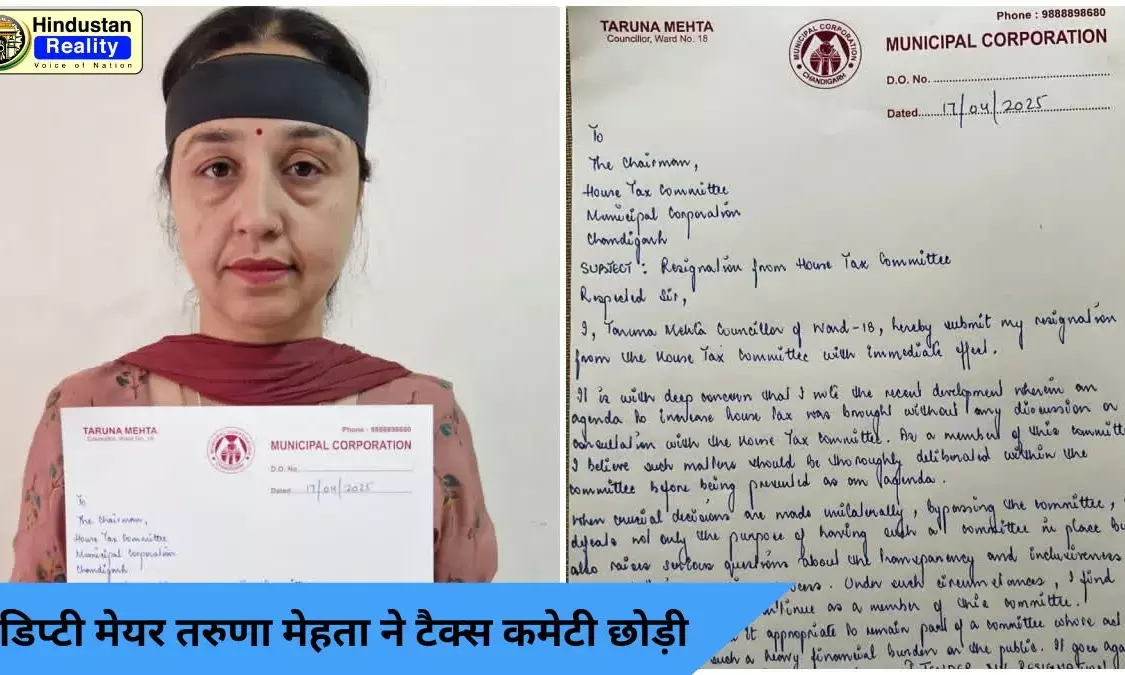 Hindustan
Reality
Voice of Nation
TARUNA MEHTA
Councillor, Ward No. 18
Phone : 9888898680
MUNICIPAL CORPORATION
D.O. No.
Dated 17/04/2025
To
The Chairman,
House Tax Committee
Municipal Corporation
Chandigarh
TARUNA MEHTA
Councillor, Ward No. 18
MUNICIPAL CORPORATION
CHANDIGARH
Phone : 9888898680
MUNICIPAL CORPORATION
D.O. No.
Dated 17/04/2025
To
The Chairman,
House Tax Committee
Municipal Corporation
Chandigarh
SUBJECT : Resignation from House Tax Committee
Respected Sir,
I, Taruna Mehta Councillor of Ward-18, hereby submit my resignation
from the House Tax Committee with immediate effect.
It is with deep concern that I note the recent development wherein an
agenda to increase house tax was brought without any discussion or
consultation with the House Tax Committee. As a member of this committe
I believe such matters should be thoroughly deliberated within the
committee before being presented as an agenda.
When crucial decisions are made unilaterally, bypassing the committee,
defeats not only the purpose of having such a committee in place bu
also raises serious questions about the transparency and inclusiveness
Under such circumstances, I find
as a member of this committee.
it appropriate to remain part of a committee whose
such a heavy financial burden on the public. It goes aga
डिप्टी मेयर तरुणा मेहता ने टैक्स कमेटी छोड़ी